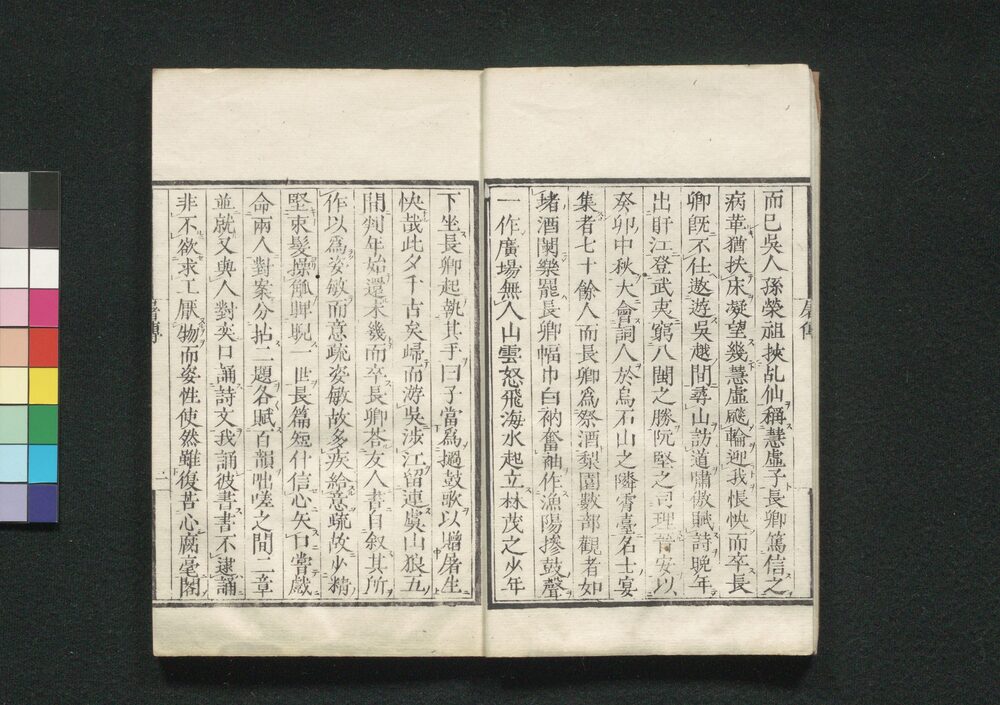 而已吳人孫榮祖挾乩仙稱慧虛子長卿篤信之
病革猶扶床凝望幾慧虛飈輪迎我悵怏而卒長
卿既不仕遨遊吳越間尋山訪道嘯傲賦詩晚年
出盱江登武夷窮八閩之勝阮堅之司理晉安以
癸卯中秋大會詞人於烏石山之隣霄臺名士宴
集者七十餘人而長卿爲祭酒梨園數部觀者如
堵酒闌樂罷長卿幅巾白衲奮袖作漁陽摻鼓聲
一作廣場無人山雲怒飛海水起立林茂之少年
下坐長卿起執其手曰子當爲撾鼓歌以增屠生
快哉此夕千古矣歸而游吳涉江留連虞山狼五
間判年始還未幾而卒長卿荅友人書自叙其所
作以爲姿敏而意疏姿敏故多疾給意疏故少精
堅束髮操觚睥睨一世長篇短什信心矢口嘗戲
命兩人對案分拈二題各賦百韻咄嗟之間二章
並就又與人對奕口誦詩文我誦彼書書不逮誦
非不欲求工厭物而姿性使然雖復苦心腐毫閣
屠傳
屠傳
二